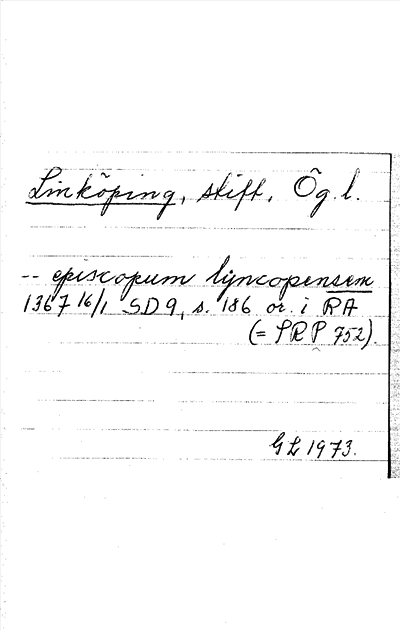 Linköping, stift, Ög. l.
-- episcopum lyncopensem
1367 16/1 SD9, s. 186 or. i RA
(= SRP 752).
GL 1973.